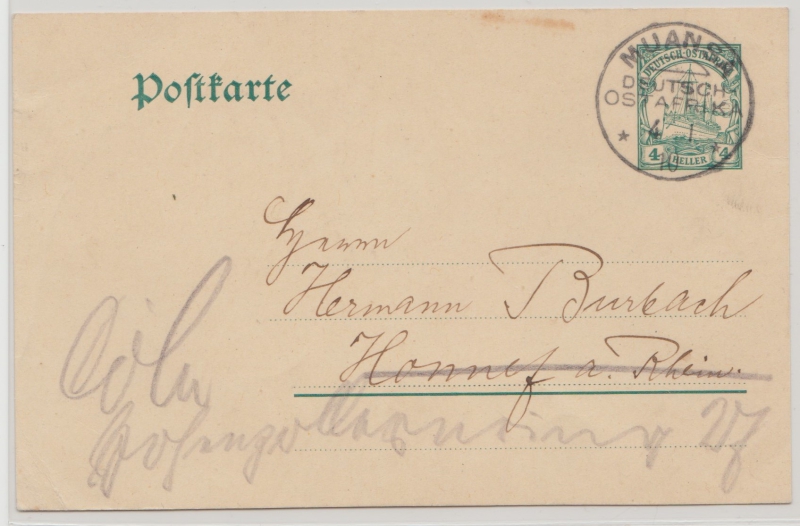 Postkarte
MUANSA
DEUTSCH-OSTAFRIKA
DEUTSCH-
OSTAFRIKA
4 1
10
4 HELLER 4
Herrn
Hermann Burbach
Honnef a. Rhein.
Cöln
Hohenzollernring